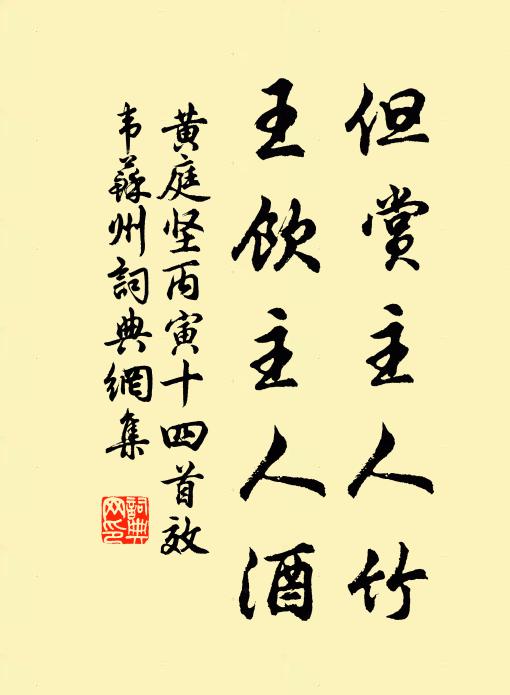 但赏主人竹
王饮主人酒
黄庭坚丙寅十四首效
韦苏州詞典網集
詞典
网印